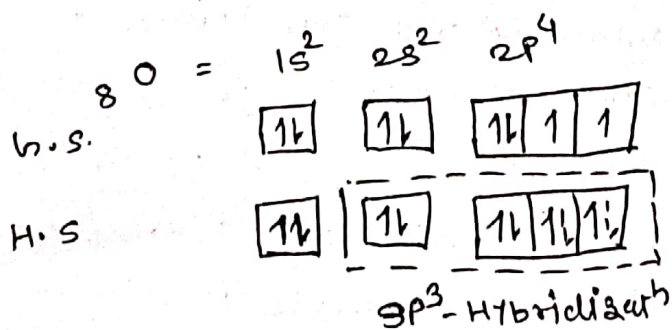 ₈O = 1s² 2s² 2p⁴
G.S. [1↓] [1↓] [1↓|1|1]
H.S [1↓] [1↓] [1↓|1↓|1↓]
sp³-Hybridizatⁿ